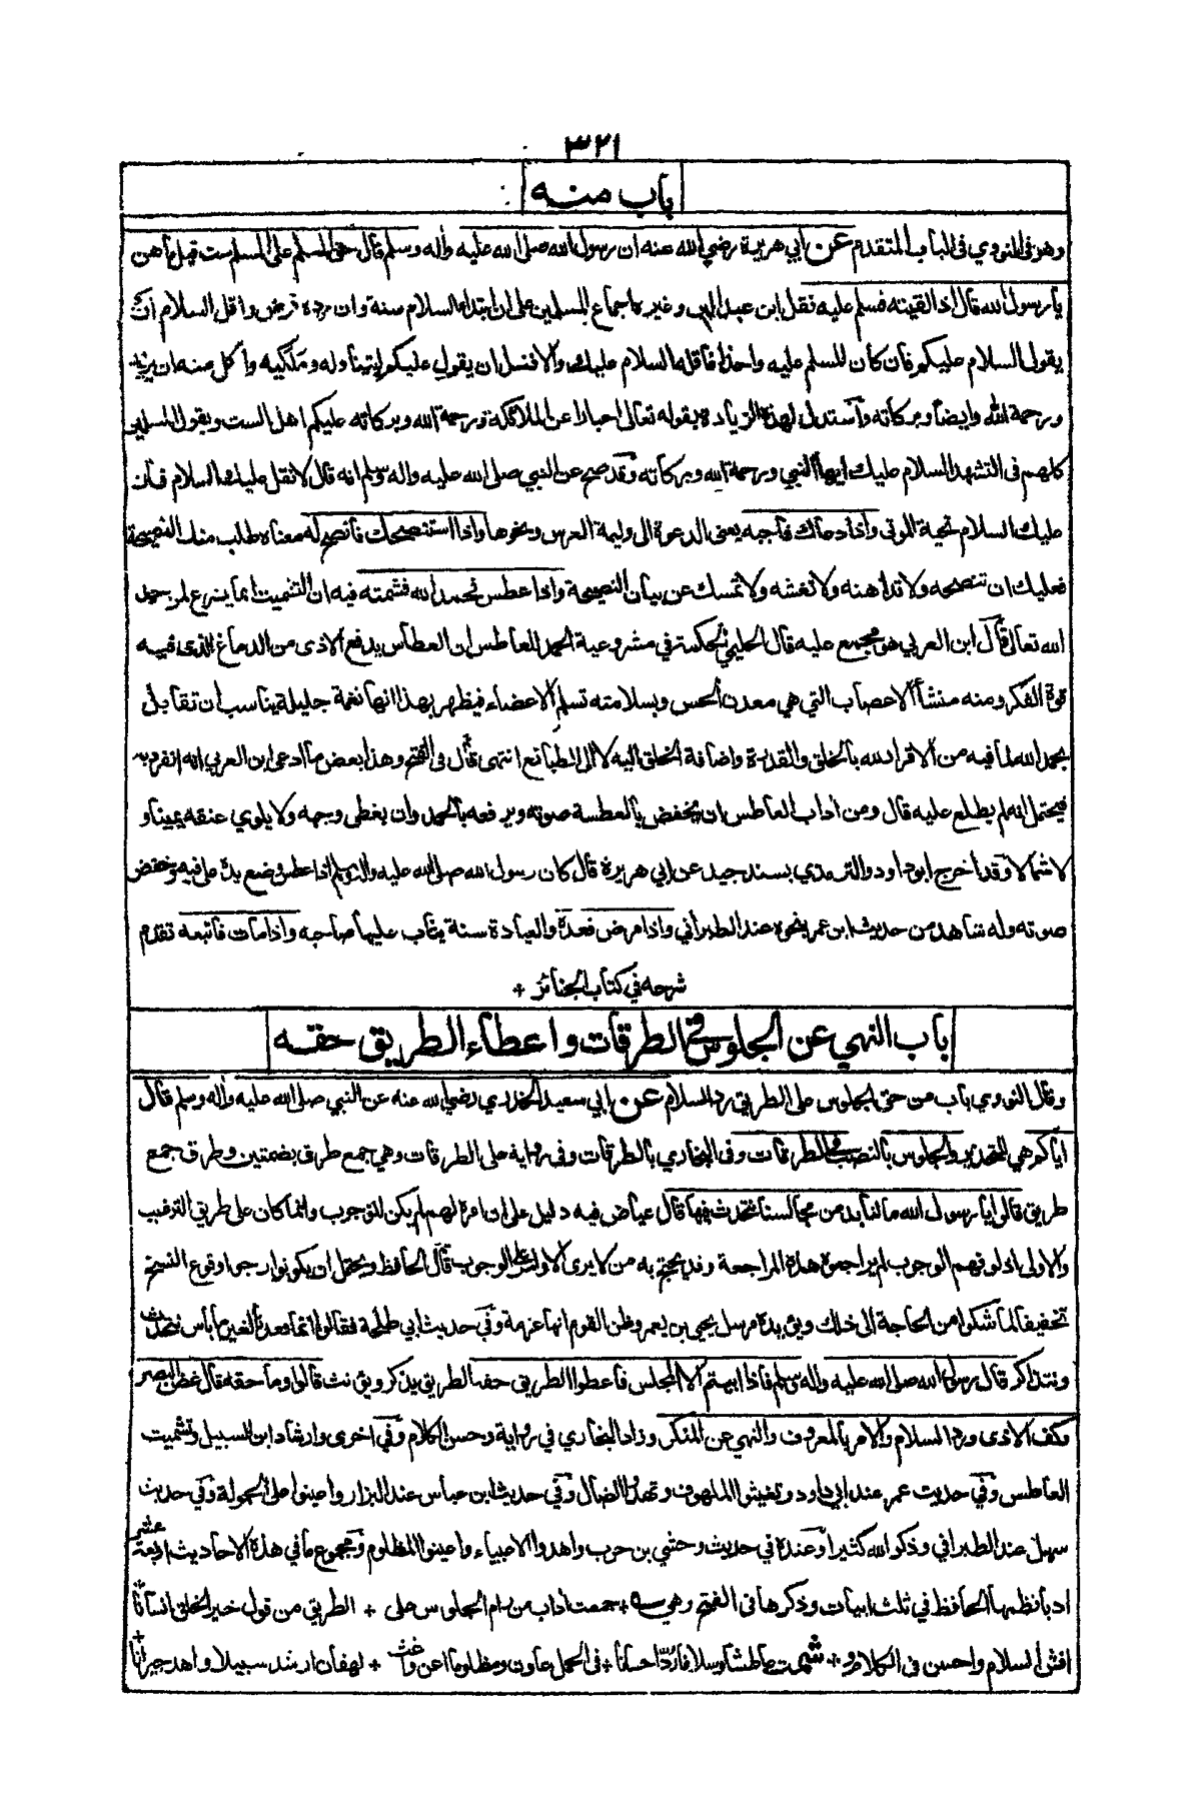 ٣٢١
باب منه
وهو في النووي في الباب المتقدم عن ابي هريرة رضي الله عنه ان رسول الله صلى الله عليه واله وسلم قال حق المسلم على المسلم ست قيل ما هن
يا رسول الله قال اذا لقيته فسلم عليه نقل ابن عبد البر وغيره اجماع المسلمين على ان ابتداء السلام سنة وان رده فرض واقل السلام ان
يقول السلام عليكم فان كان المسلم عليه واحدا فاقله السلام عليك والافضل ان يقول عليكم ليتناوله وملكيه واكمل منه ان يزيد
ورحمة الله وايضا وبركاته واستدل لهذه الزيادة بقوله تعالى اخبارا عن الملائكة ورحمة الله وبركاته عليكم اهل البيت وبقول المسلمين
كلهم في التشهد السلام عليك ايها النبي ورحمة الله وبركاته وقد صح عن النبي صلى الله عليه واله وسلم انه قال لا تقل عليك السلام فان
عليك السلام تحية الموتى واذا دعاك فاجبه يعني الدعوة الى وليمة العرس ونحوها واذا استنصحك فانصح له معناه طلب منك النصيحة
فعليك ان تنصحه ولا تداهنه ولا تغشه ولا تمسك عن بيان النصيحة واذا عطس فحمد الله فشمته فيه ان التشميت انما يشرع لمن حمد
الله تعالى قال ابن العربي هو مجمع عليه قال الحليمي الحكمة في مشروعية الحمد للعاطس ان العطاس يدفع الاذى من الدماغ الذي فيه
قوة الفكر ومنه منشأ الاعصاب التي هي معدن الحس وبسلامته تسلم الاعضاء فيظهر بهذا انها نعمة جليلة يناسب ان تقابل
بحمد الله لما فيه من الاقرار لله بالخلق والقدرة واضافة الخلق اليه لا الى الطبائع انتهى قال في الفتح وهذا بعض ما ادعى ابن العربي انه انفرد به
فيحتمل انه لم يطلع عليه قال ومن اداب العاطس ان يخفض بالعطسة صوته ويرفعه بالحمد وان يغطي وجهه ولا يلوي عنقه يمينا و
لا شمالا وقد اخرج ابو داود والترمذي بسند جيد عن ابي هريرة قال كان رسول الله صلى الله عليه واله وسلم اذا عطس وضع يده على فيه وخفض
صوته وله شاهد من حديث ابن عمر بنحوه عند الطبراني واذا مرض فعده والعيادة سنة يثاب عليها صاحبه واذا مات فاتبعه تقدم
شرحه في كتاب الجنائز +
باب النهي عن الجلوس في الطرقات واعطاء الطريق حقه
وقال النووي باب من حق الجلوس على الطريق رد السلام عن ابي سعيد الخدري رضي الله عنه عن النبي صلى الله عليه واله وسلم قال
اياكم هي للتحذير والجلوس بالنصب في الطرقات وفي البخاري بالطرقات وفي رواية على الطرقات وهي جمع طرق بضمتين وطرق جمع
طريق قالوا يا رسول الله ما لنا بد من مجالسنا نتحدث فيها قال عياض فيه دليل على ان امره لهم لم يكن للوجوب وانما كان على طريق الترغيب
والاولى اذ لو فهم الوجوب لم يراجعوه هذه المراجعة وقد يحتج به من لا يرى الاوامر على الوجوب قال الحافظ ويحتمل ان يكونوا رجوا وقوع النسخ
تخفيفا لما شكوا من الحاجة الى ذلك ويؤيده مرسل يحيى بن يعمر وظن القوم انها عزمة وفي حديث ابي طلحة فقالوا انما قعدنا لغير ما بأس نتحدث
ونتذاكر قال رسول الله صلى الله عليه واله وسلم فاذا ابيتم الا المجلس فاعطوا الطريق حقه الطريق يذكر ويؤنث قالوا وما حقه قال غض البصر
وكف الاذى ورد السلام والامر بالمعروف والنهي عن المنكر وزاد البخاري في رواية وحسن الكلام وفي اخرى وارشاد ابن السبيل وتشميت
العاطس وفي حديث عمر عند ابي داود وتغيثوا الملهوف وتهدوا الضال وفي حديث ابن عباس عند البزار واعينوا على الحمولة وفي حديث
سهل عند الطبراني وذكر الله كثيرا وعنده في حديث وحشي بن حرب واهدوا الاغبياء واعينوا المظلوم ومجموع ما في هذه الاحاديث اربعة عشر
ادبا نظمها الحافظ في ثلث ابيات وذكرها في الفتح وهي + جمعت اداب من رام الجلوس على + الطريق من قول خير الخلق انسانا +
افش السلام واحسن في الكلام و + شمت عاطسا وسلاما رد احسانا + في الحمل عاون ومظلوما اعن واغث + لهفان ارشد سبيلا واهد حيرانا +